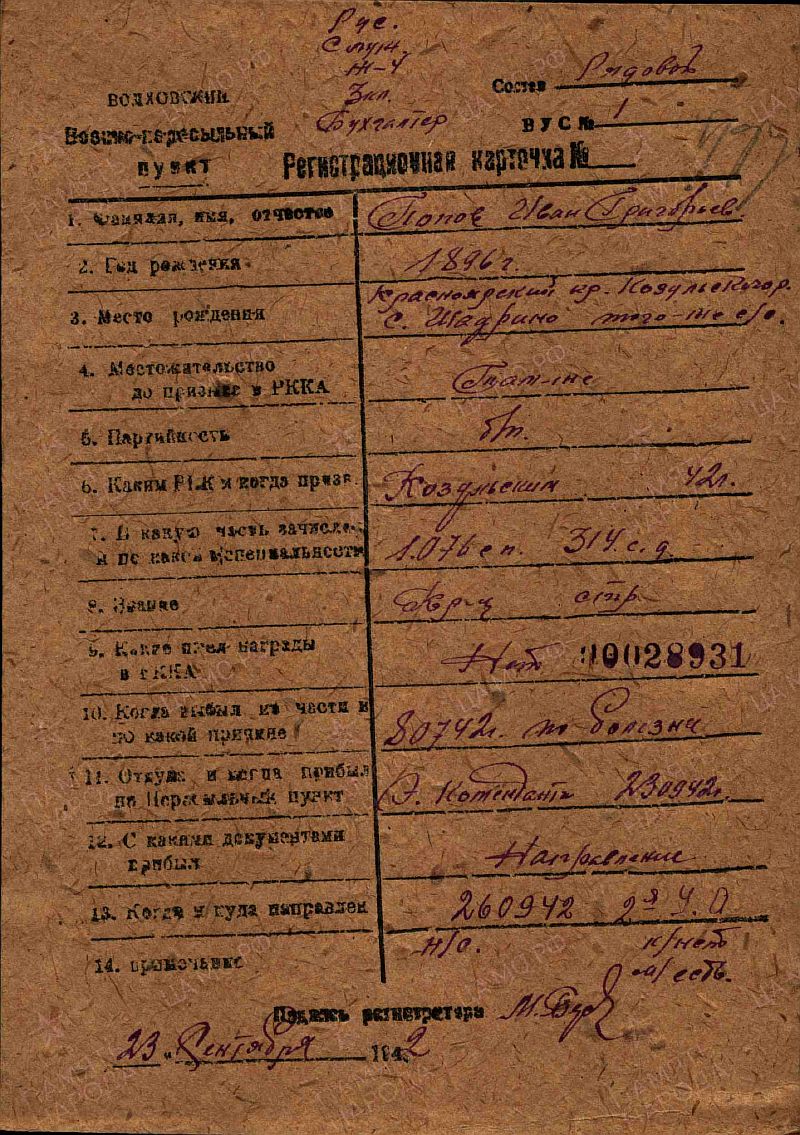 Рус.
Служ.
Ж-4
Зкл.
Бухгалтер
Состав Рядовой
ВУС № 1
ВОЛХОВСКИЙ
Военно-пересыльный
пункт
Регистрационная карточка №
1. Фамилия, имя, отчество Попов Иван Григорьев.
2. Год рождения 1896 г.
3. Место рождения Красноярский кр. Козульск. р.
с. Шадрино того-же с/с.
4. Местожительство
до призыва в РККА Там-же
5. Партийность б/п.
6. Каким РВК и когда призв. Козульским 42 г.
7. В какую часть зачислен
и по какой специальности 1.076 с п. 314. с. д.
8. Звание Кр-ц стр
9. Какие имел награды
в РККА Нет 00028931
10. Когда выбыл из части и
по какой причине 80742 г. по болезни
11. Откуда и когда прибыл
на Пересыльный пункт Э. Комендант 230942 г.
12. С какими документами
прибыл Направление
13. Когда и куда направлен 260942 2я У. А
14. примечание н/о. к/нет
м/есть.
Подпись регистратора
23 " Сентября 1942